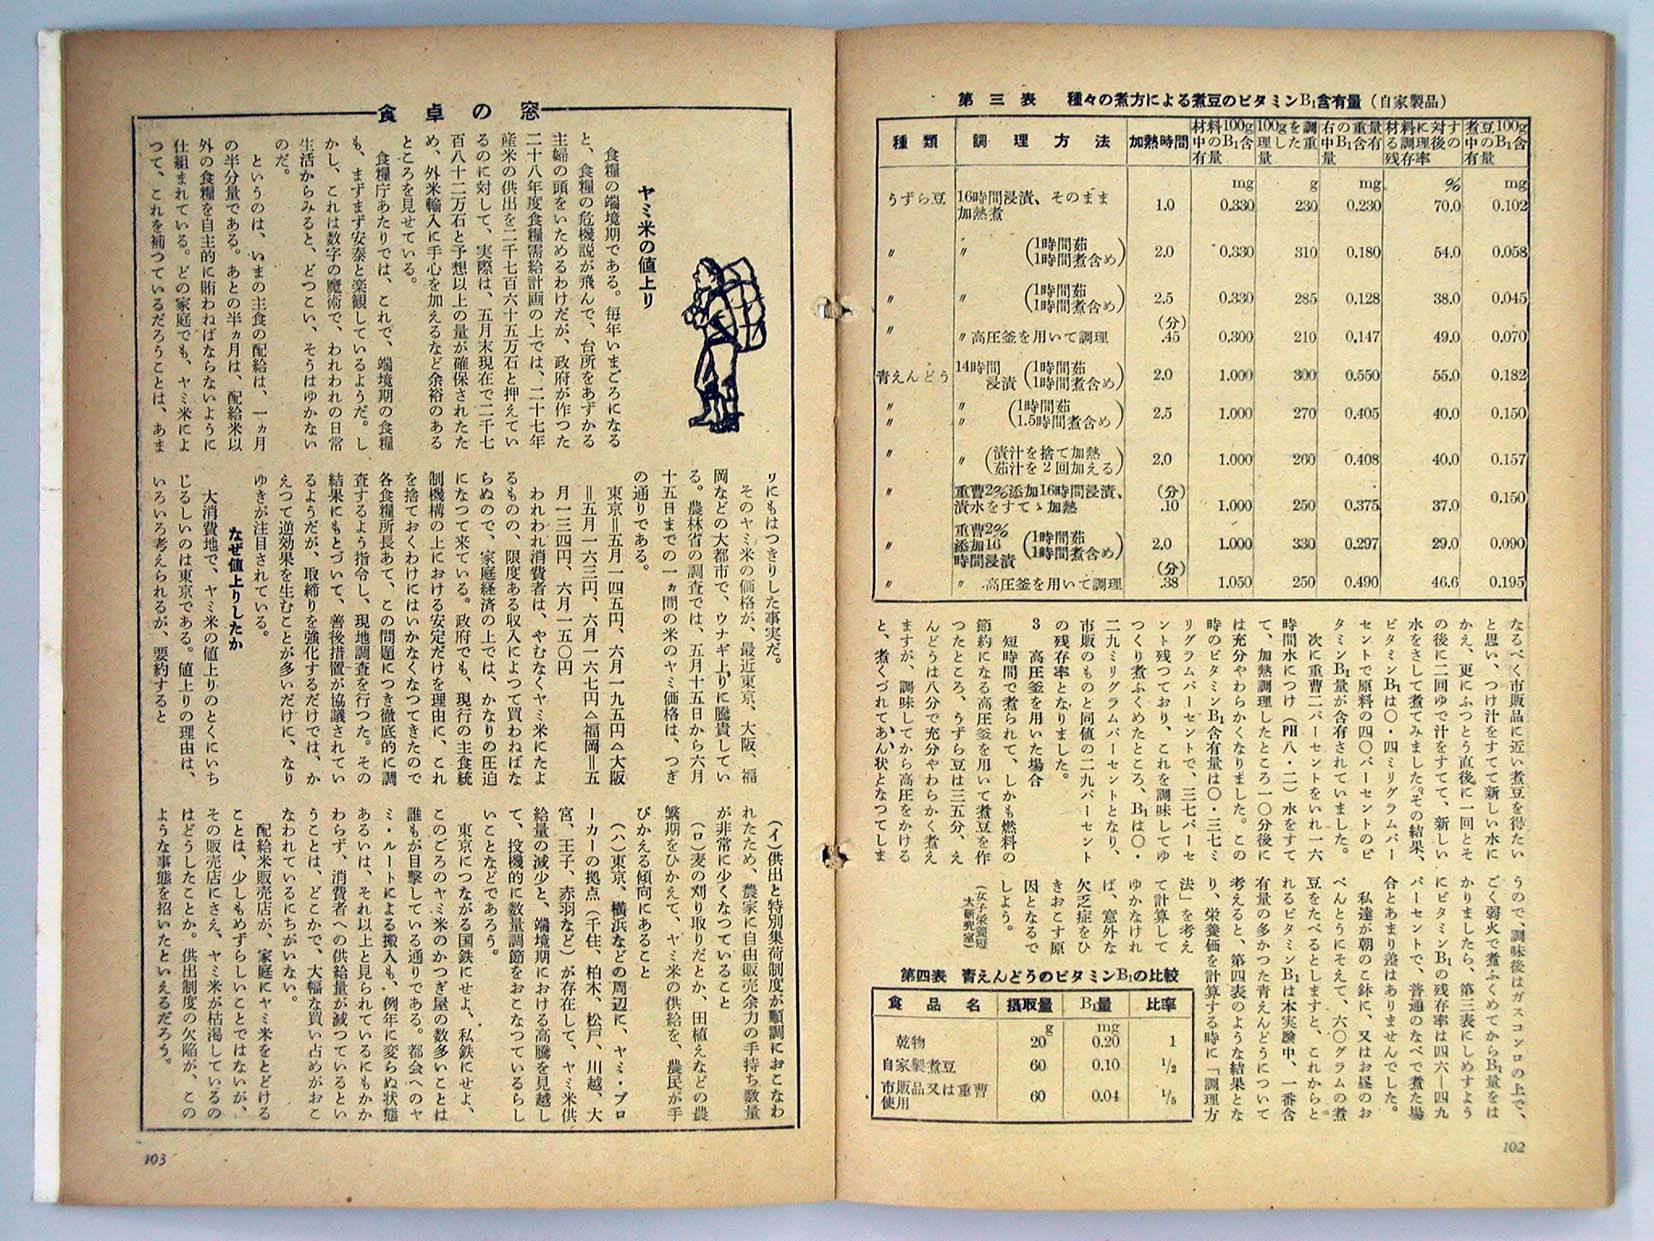 第三表　種々の煮方による煮豆のビタミンB₁含有量（自家製品）
種類　調理方法　加熱時間　材料100g中のB₁含有量　100gを調理した重量　右の重量中のB₁含有量　材料に対する調理後の残存率　煮豆100g中のB₁含有量
mg　g　mg　%　mg
うずら豆　16時間浸漬、そのまま加熱煮　1.0　0.330　230　0.230　70.0　0.102
〃　〃（1時間茹　1時間煮含め）　2.0　0.330　310　0.180　54.0　0.058
〃　〃（1時間茹　1時間煮含め）　2.5　0.330　285　0.128　38.0　0.045
〃　〃高圧釜を用いて調理　（分）.45　0.300　210　0.147　49.0　0.070
青えんどう　14時間浸漬（1時間茹　1時間煮含め）　2.0　1.000　300　0.550　55.0　0.182
〃　〃（1時間茹　1.5時間煮含め）　2.5　1.000　270　0.405　40.0　0.150
〃　〃（漬汁を捨て加熱　茹汁を2回加える）　2.0　1.000　260　0.408　40.0　0.157
〃　重曹2%添加16時間浸漬、漬水をすてゝ加熱　（分）.10　1.000　250　0.375　37.0　0.150
〃　重曹2%添加16時間浸漬（1時間茹　1時間煮含め）　2.0　1.000　330　0.297　29.0　0.090
〃　〃高圧釜を用いて調理　（分）.38　1.050　250　0.490　46.6　0.195
なるべく市販品に近い煮豆を得たい
と思い、つけ汁をすてて新しい水に
かえ、更にふつとう直後に一回とそ
の後に二回ゆで汁をすてて、新しい
水をさして煮てみました。その結果、
ビタミンB₁は〇・四ミリグラムパー
セントで原料の四〇パーセントのビ
タミンB₁量が含有されていました。
次に重曹二パーセントをいれ一六
時間水につけ（PH八・二）水をすて
て、加熱調理したところ一〇分後に
は充分やわらかくなりました。この
時のビタミンB₁含有量は〇・三七ミ
リグラムパーセントで、三七パーセ
ント残つており、これを調味してゆ
つくり煮ふくめたところ、B₁は〇・
二九ミリグラムパーセントとなり、
市販のものと同値の二九パーセント
の残存率となりました。
3　高圧釜を用いた場合
短時間で煮られて、しかも燃料の
節約になる高圧釜を用いて煮豆を作
つたところ、うずら豆は三五分、え
んどうは八分で充分やわらかく煮え
ますが、調味してから高圧をかける
と、煮くづれてあん状となつてしま
うので、調味後はガスコンロの上で、
ごく弱火で煮ふくめてからB₁量をは
かりましたら、第三表にしめすよう
にビタミンB₁の残存率は四六―四九
パーセントで、普通のなべで煮た場
合とあまり差はありませんでした。
私達が朝のこ鉢に、又はお昼のお
べんとうにそえて、六〇グラムの煮
豆をたべるとしますと、これからと
れるビタミンB₁は本実験中、一番含
有量の多かつた青えんどうについて
考えると、第四表のような結果とな
り、栄養価を計算する時に「調理方
法」を考え
て計算して
ゆかなけれ
ば、意外な
欠乏症をひ
きおこす原
因となるで
しよう。
（女子栄養短大研究室）
第四表　青えんどうのビタミンB₁の比較
食品名　摂取量　B₁量　比率
g　mg
乾物　20　0.20　1
自家製煮豆　60　0.10　1/2
市販品又は重曹使用　60　0.04　1/5
102
食卓の窓
ヤミ米の値上り
食糧の端境期である。毎年いまごろになる
と、食糧の危機説が飛んで、台所をあずかる
主婦の頭をいためるわけだが、政府が作つた
二十八年度食糧需給計画の上では、二十七年
産米の供出を二千七百六十五万石と押えてい
るのに対して、実際は、五月末現在で二千七
百八十二万石と予想以上の量が確保されたた
め、外米輸入に手心を加えるなど余裕のある
ところを見せている。
食糧庁あたりでは、これで、端境期の食糧
も、まずまず安泰と楽観しているようだ。し
かし、これは数字の魔術で、われわれの日常
生活からみると、どつこい、そうはゆかない
のだ。
というのは、いまの主食の配給は、一ヵ月
の半分量である。あとの半ヵ月は、配給米以
外の食糧を自主的に賄わねばならないように
仕組まれている。どの家庭でも、ヤミ米によ
つて、これを補つているだろうことは、あま
りにもはつきりした事実だ。
そのヤミ米の価格が、最近東京、大阪、福
岡などの大都市で、ウナギ上りに騰貴してい
る。農林省の調査では、五月十五日から六月
十五日までの一ヵ間の米のヤミ価格は、つぎ
の通りである。
東京＝五月一四五円、六月一九五円△大阪
＝五月一六三円、六月一六七円△福岡＝五
月一三四円、六月一五〇円
われわれ消費者は、やむなくヤミ米にたよ
るものの、限度ある収入によつて買わねばな
らぬので、家庭経済の上では、かなりの圧迫
になつて来ている。政府でも、現行の主食統
制機構の上における安定だけを理由に、これ
を捨ておくわけにはいかなくなつてきたので
各食糧所長あて、この問題につき徹底的に調
査するよう指令し、現地調査を行つた。その
結果にもとづいて、善後措置が協議されてい
るようだが、取締りを強化するだけでは、か
えつて逆効果を生むことが多いだけに、なり
ゆきが注目されている。
なぜ値上りしたか
大消費地で、ヤミ米の値上りのとくにいち
じるしいのは東京である。値上りの理由は、
いろいろ考えられるが、要約すると
（イ）供出と特別集荷制度が順調におこなわ
れたため、農家に自由販売余力の手持ち数量
が非常に少くなつていること
（ロ）麦の刈り取りだとか、田植えなどの農
繁期をひかえて、ヤミ米の供給を、農民が手
びかえる傾向にあること
（ハ）東京、横浜などの周辺に、ヤミ・ブロ
ーカーの拠点（千住、柏木、松戸、川越、大
宮、王子、赤羽など）が存在して、ヤミ米供
給量の減少と、端境期における高騰を見越し
て、投機的に数量調節をおこなつているらし
いことなどであろう。
東京につながる国鉄にせよ、私鉄にせよ、
このごろのヤミ米のかつぎ屋の数多いことは
誰もが目撃している通りである。都会へのヤ
ミ・ルートによる搬入も、例年に変らぬ状態
あるいは、それ以上と見られているにもかか
わらず、消費者への供給量が減つているとい
うことは、どこかで、大幅な買い占めがおこ
なわれているにちがいない。
配給米販売店が、家庭にヤミ米をとどける
ことは、少しもめずらしいことではないが、
その販売店にさえ、ヤミ米が枯渇しているの
はどうしたことか。供出制度の欠陥が、この
ような事態を招いたといえるだろう。
103